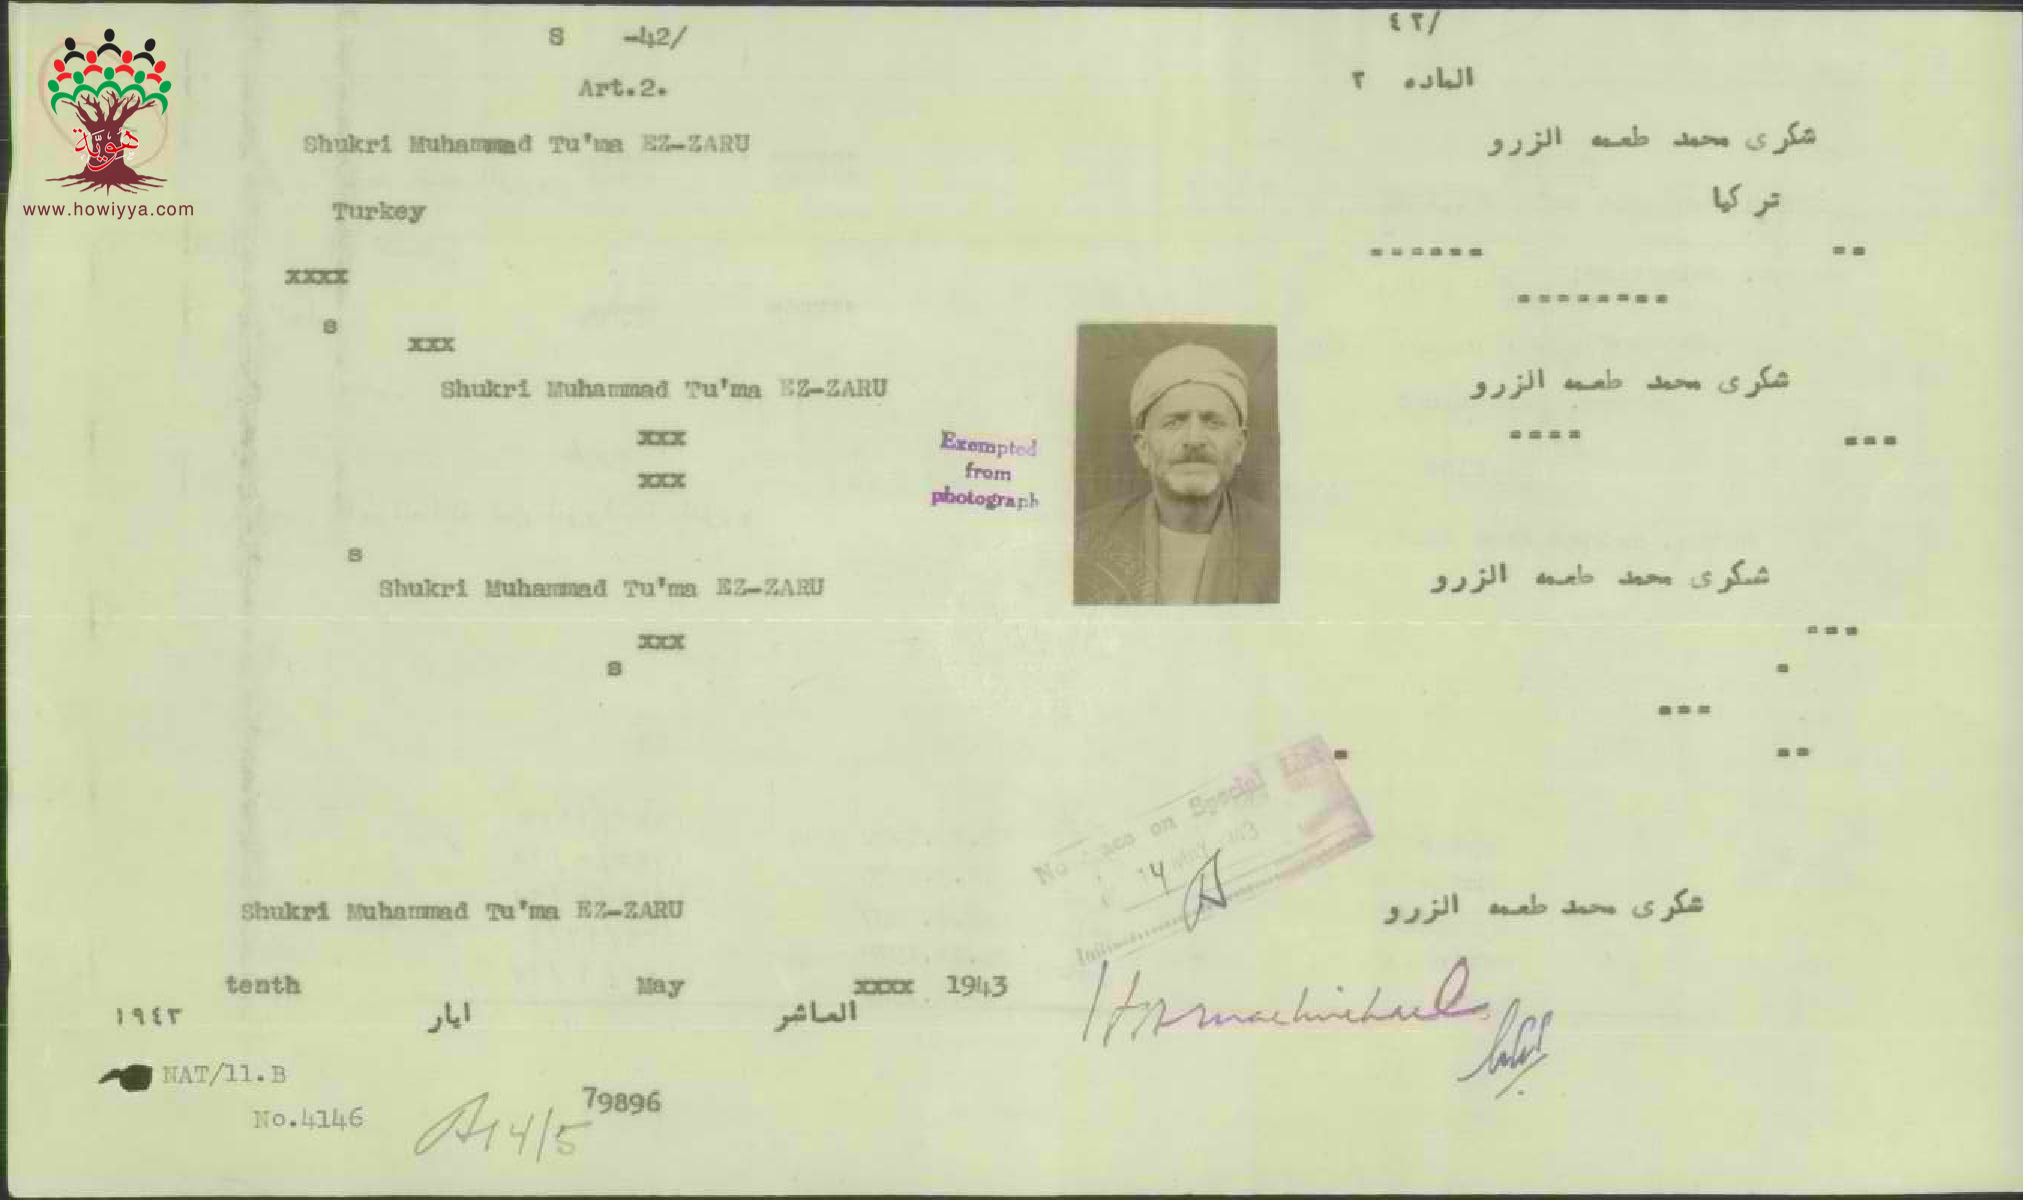 هُويَّة
www.howiyya.com
S -42/
٤٢/
Art.2.
المادة ٢
Shukri Muhammad Tu'ma EZ-ZARU
شكرى محمد طعمه الزرو
Turkey
تركيا
------ --
xxxx
--------
s
xxx
Shukri Muhammad Tu'ma EZ-ZARU
شكرى محمد طعمه الزرو
xxx
---- ---
xxx
Exempted
from
photograph
s
Shukri Muhammad Tu'ma EZ-ZARU
شكرى محمد طعمه الزرو
xxx
---
s
-
---
- --
No on Special List
14 May 43
Shukri Muhammad Tu'ma EZ-ZARU
شكرى محمد طعمه الزرو
tenth May xxxx 1943
العاشر ايار ١٩٤٣
NAT/11.B
No.4146
14/5
79896